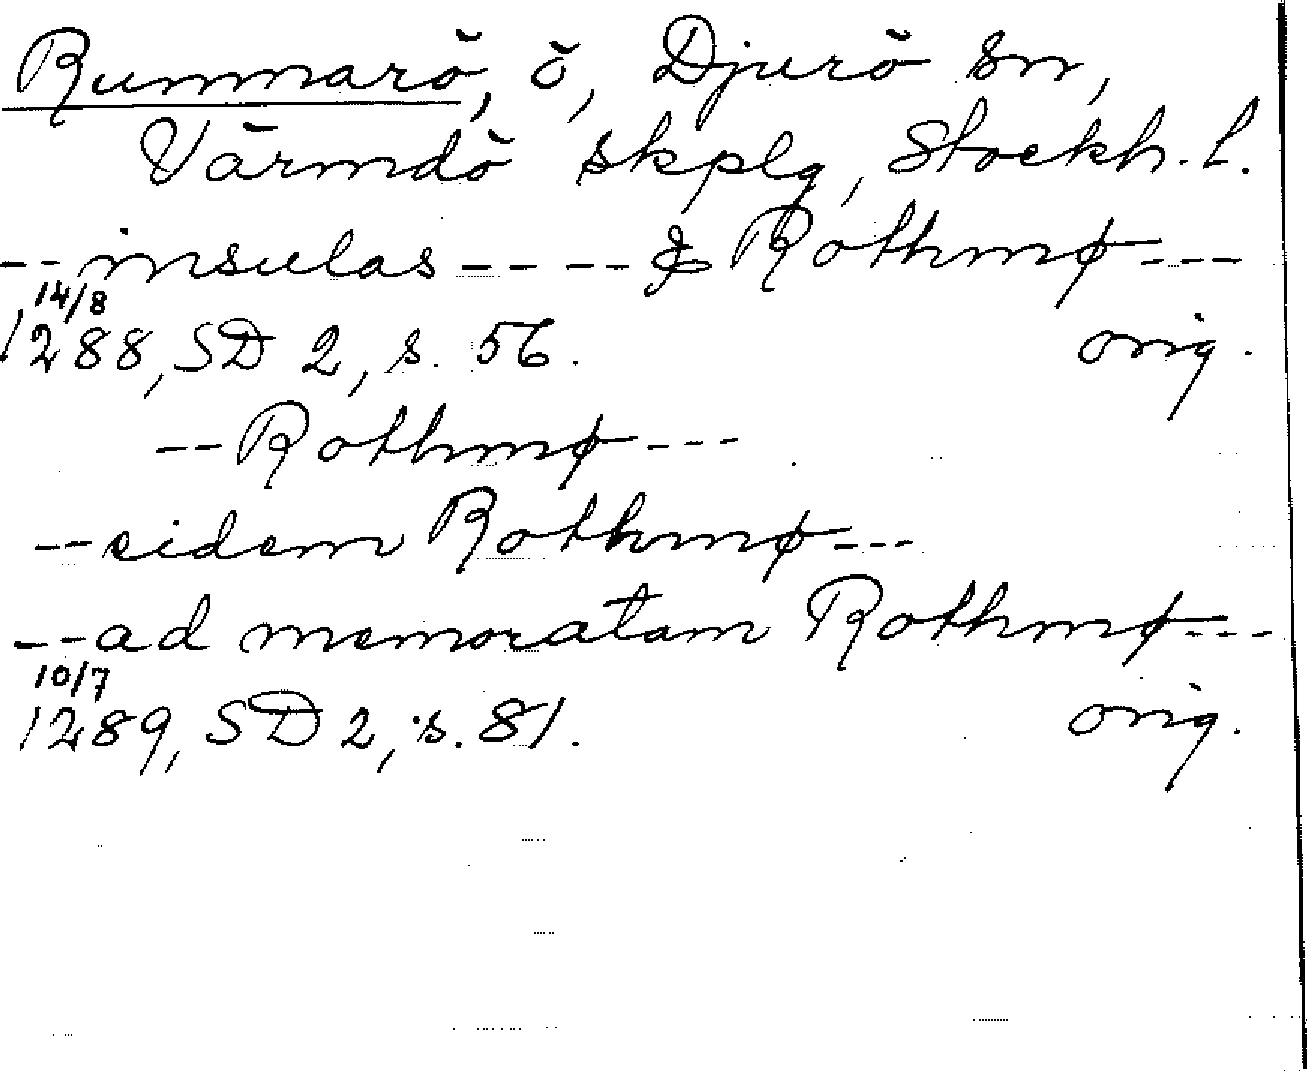 Rummarö, ö, Djurö sn,
Värmdö skplg, Stockh. l.
-- insulas ---- & Rothmø ---
14/8
1288, SD 2, s. 56. orig.
-- Rothmø ---
-- eidem Rothmø ---
-- ad memoratam Rothmø ---
10/7
1289, SD 2, s. 81. orig.